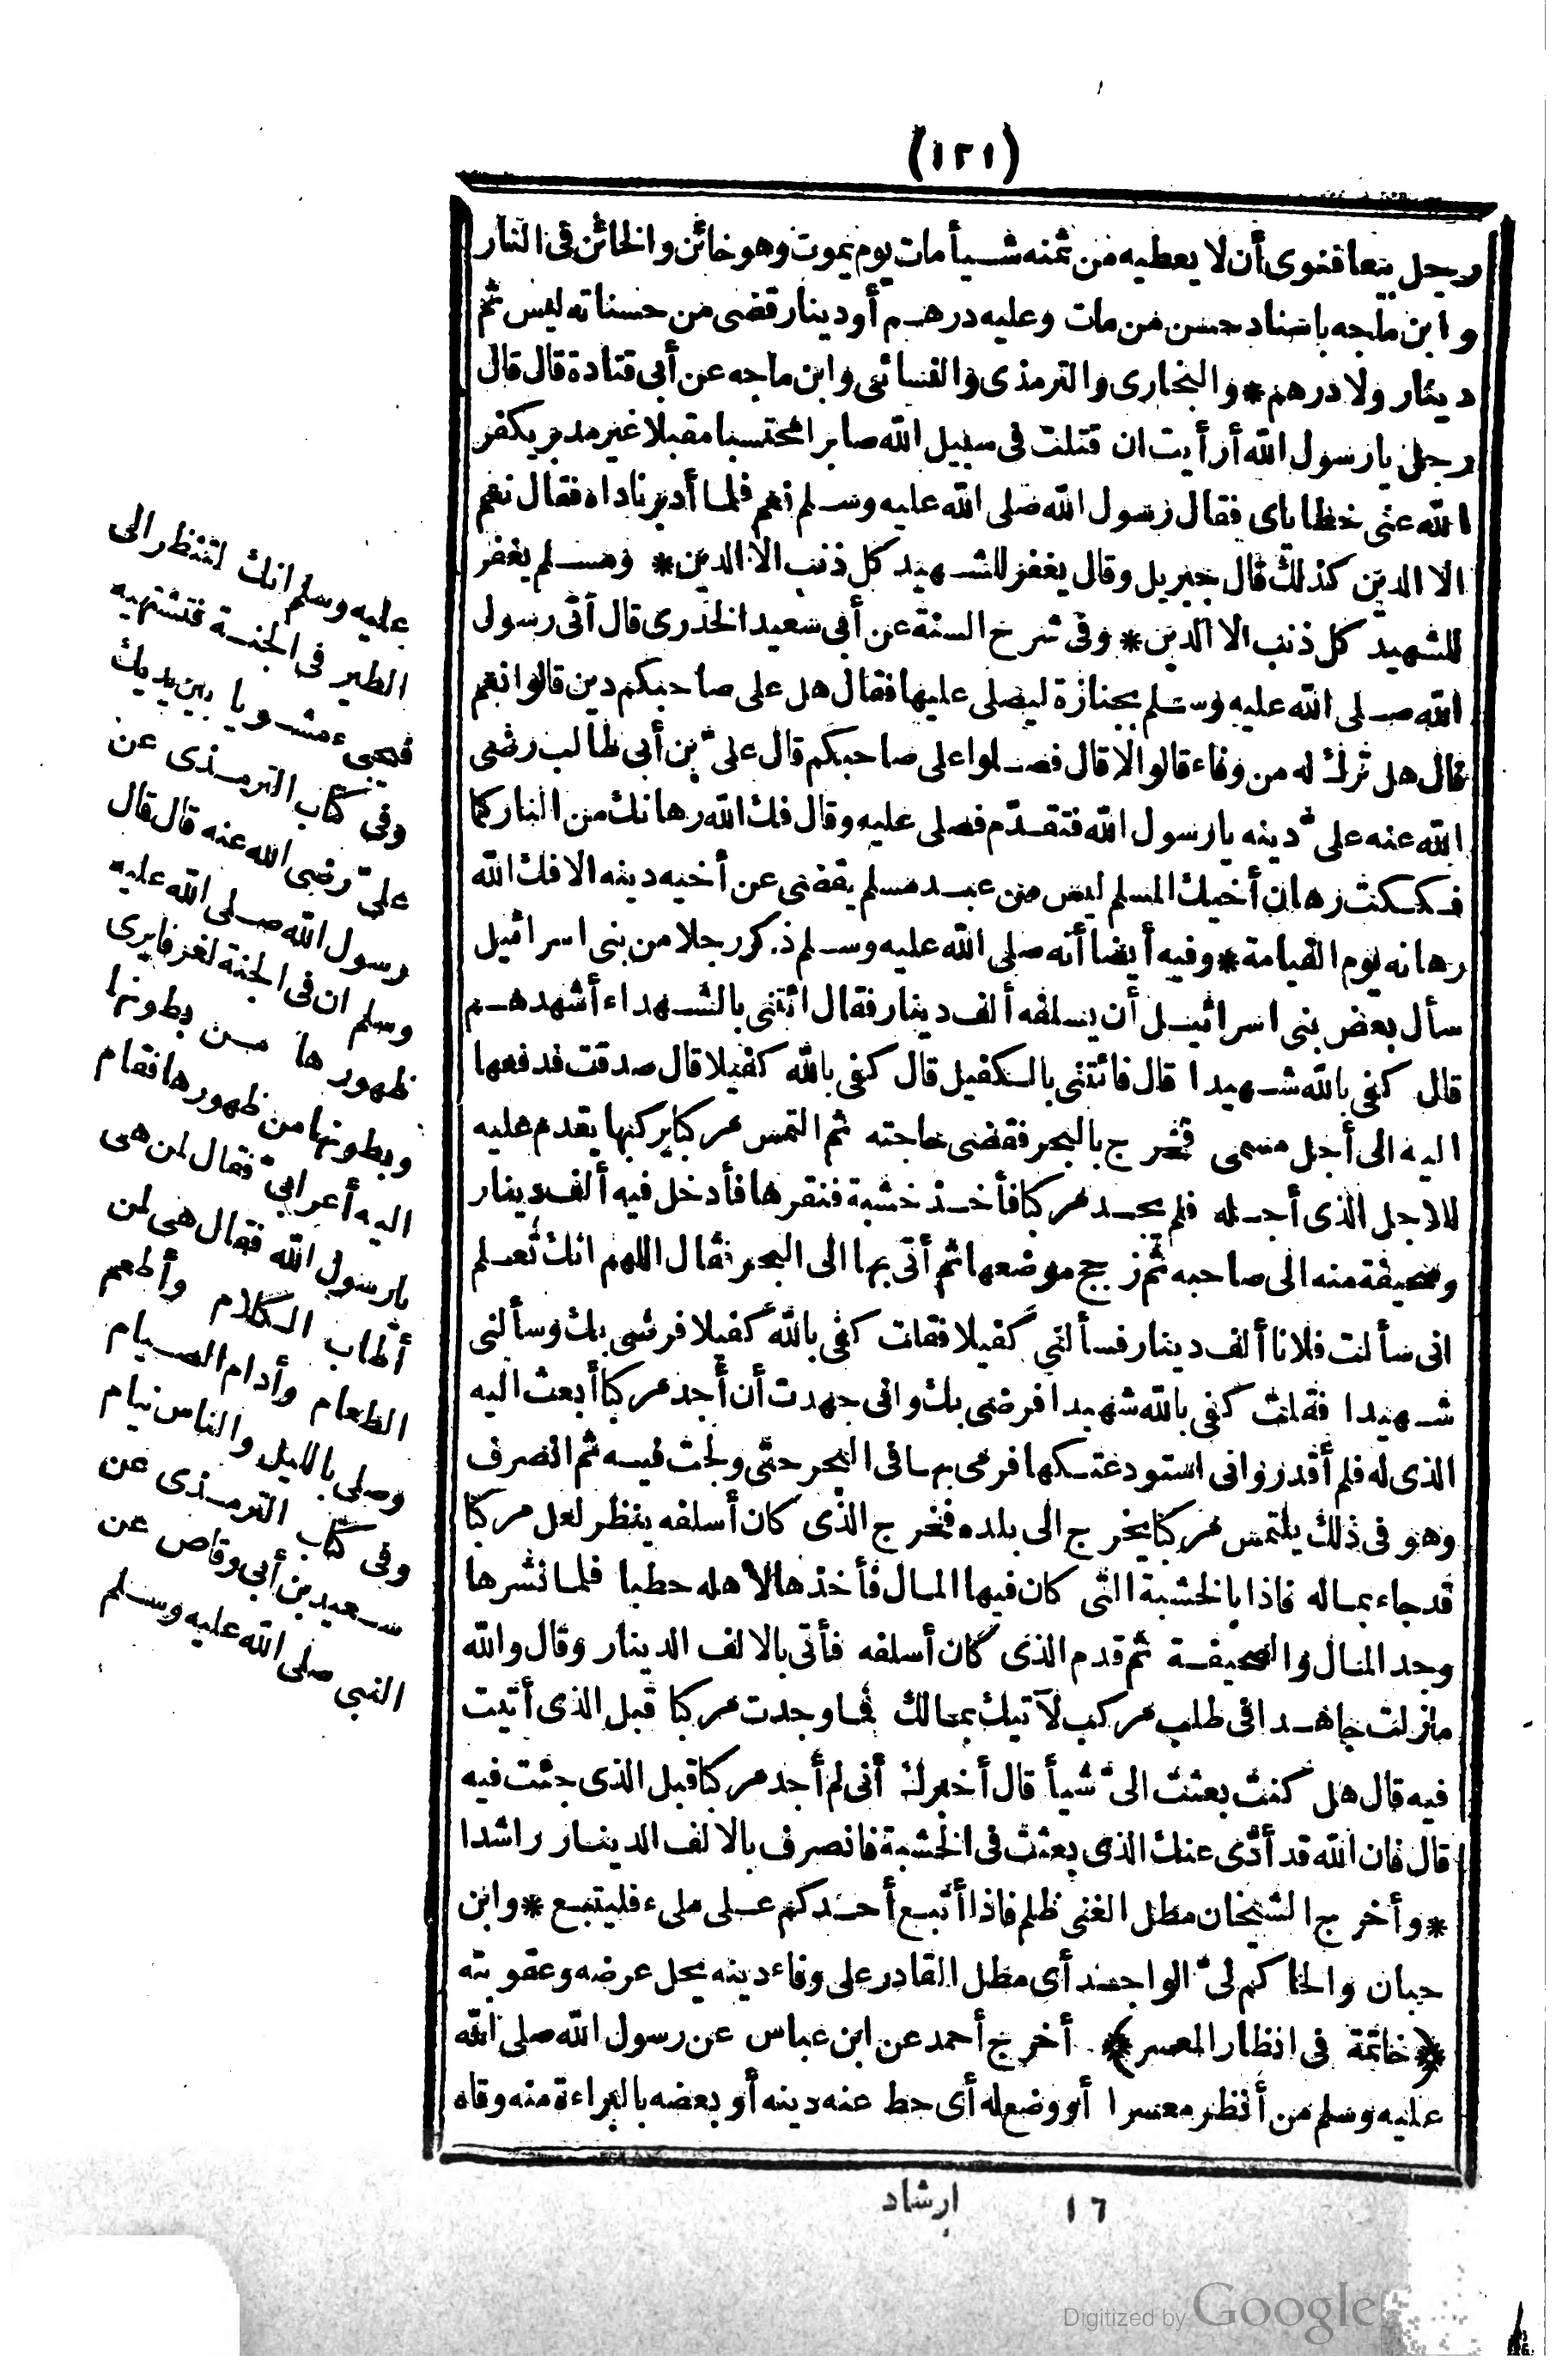 (١٢١)
رجل بيعا فنوى أن لا يعطيه من ثمنه شيأ مات يوم يموت وهو خائن والخائن فى النار
وابن ماجه باسناد حسن من مات وعليه درهم أو دينار قضى من حسناته ليس ثم
دينار ولا درهم * والبخارى والترمذى والنسائى وابن ماجه عن أبى قتادة قال قال
رجل يارسول الله أرأيت ان قتلت فى سبيل الله صابرا محتسبا مقبلا غير مدبر يكفر
الله عنى خطاياى فقال رسول الله صلى الله عليه وسلم نعم فلما أدبر ناداه فقال نعم
الا الدين كذلك قال جبريل وقال يغفر للشهيد كل ذنب الا الدين * ومسلم يغفر
للشهيد كل ذنب الا الدين * وفى شرح السنة عن أبى سعيد الخدرى قال أتى رسول
الله صلى الله عليه وسلم بجنازة ليصلى عليها فقال هل على صاحبكم دين قالوا نعم
قال هل ترك له من وفاء قالوا لا قال فصلوا على صاحبكم قال علىّ بن أبى طالب رضى
الله عنه علىّ دينه يارسول الله فتقدّم فصلى عليه وقال فك الله رهانك من النار كما
فككت رهان أخيك المسلم ليس من عبد مسلم يقضى عن أخيه دينه الا فك الله
رهانه يوم القيامة * وفيه أيضا أنه صلى الله عليه وسلم ذكر رجلا من بنى اسرائيل
سأل بعض بنى اسرائيل أن يسلفه ألف دينار فقال ائتنى بالشهداء أشهدهم
قال كفى بالله شهيدا قال فائتنى بالكفيل قال كفى بالله كفيلا قال صدقت فدفعها
اليه الى أجل مسمى فخرج بالبحر فقضى حاجته ثم التمس مركبا يركبها يقدم عليه
للاجل الذى أجله فلم يجد مركبا فأخذ خشبة فنقرها فأدخل فيه ألف دينار
وصحيفة منه الى صاحبه ثم زجج موضعها ثم أتى بها الى البحر فقال اللهم انك تعلم
انى سألت فلانا ألف دينار فسألنى كفيلا فقلت كفى بالله كفيلا فرضى بك وسألنى
شهيدا فقلت كفى بالله شهيدا فرضى بك وانى جهدت أن أجد مركبا أبعث اليه
الذى له فلم أقدر وانى استودعتكها فرمى بها فى البحر حتى ولجت فيه ثم انصرف
وهو فى ذلك يلتمس مركبا يخرج الى بلده فخرج الذى كان أسلفه ينظر لعل مركبا
قد جاء بماله فاذا بالخشبة التى كان فيها المال فأخذها لاهله حطبا فلما نشرها
وجد المال والصحيفة ثم قدم الذى كان أسلفه فأتى بالالف الدينار وقال والله
مازلت جاهدا فى طلب مركب لآتيك بمالك فما وجدت مركبا قبل الذى أتيت
فيه قال هل كنت بعثت الىّ شيأ قال أخبرك أنى لم أجد مركبا قبل الذى جئت فيه
قال فان الله قد أدّى عنك الذى بعثت فى الخشبة فانصرف بالالف الدينار راشدا
* وأخرج الشيخان مطل الغنى ظلم فاذا أتبع أحدكم على ملىء فليتبع * وابن
حبان والحاكم لىّ الواجد أى مطل القادر على وفاء دينه يحل عرضه وعقوبته
﴿خاتمة فى انظار المعسر﴾ أخرج أحمد عن ابن عباس عن رسول الله صلى الله
عليه وسلم من أنظر معسرا أو وضع له أى حط عنه دينه أو بعضه بالبراءة منه وقاه
عليه وسلم انك لتنظر الى
الطير فى الجنة فتشتهيه
فيجىء مشويا بين يديك
وفى كتاب الترمذى عن
علىّ رضى الله عنه قال قال
رسول الله صلى الله عليه
وسلم ان فى الجنة لغرفا يرى
ظهورها من بطونها
وبطونها من ظهورها فقام
اليه أعرابىّ فقال لمن هى
يارسول الله فقال هى لمن
أطاب الكلام وأطعم
الطعام وأدام الصيام
وصلى بالليل والناس نيام
وفى كتاب الترمذى عن
سعيد بن أبى وقاص عن
النبى صلى الله عليه وسلم
١٦ ارشاد
Digitized by Google